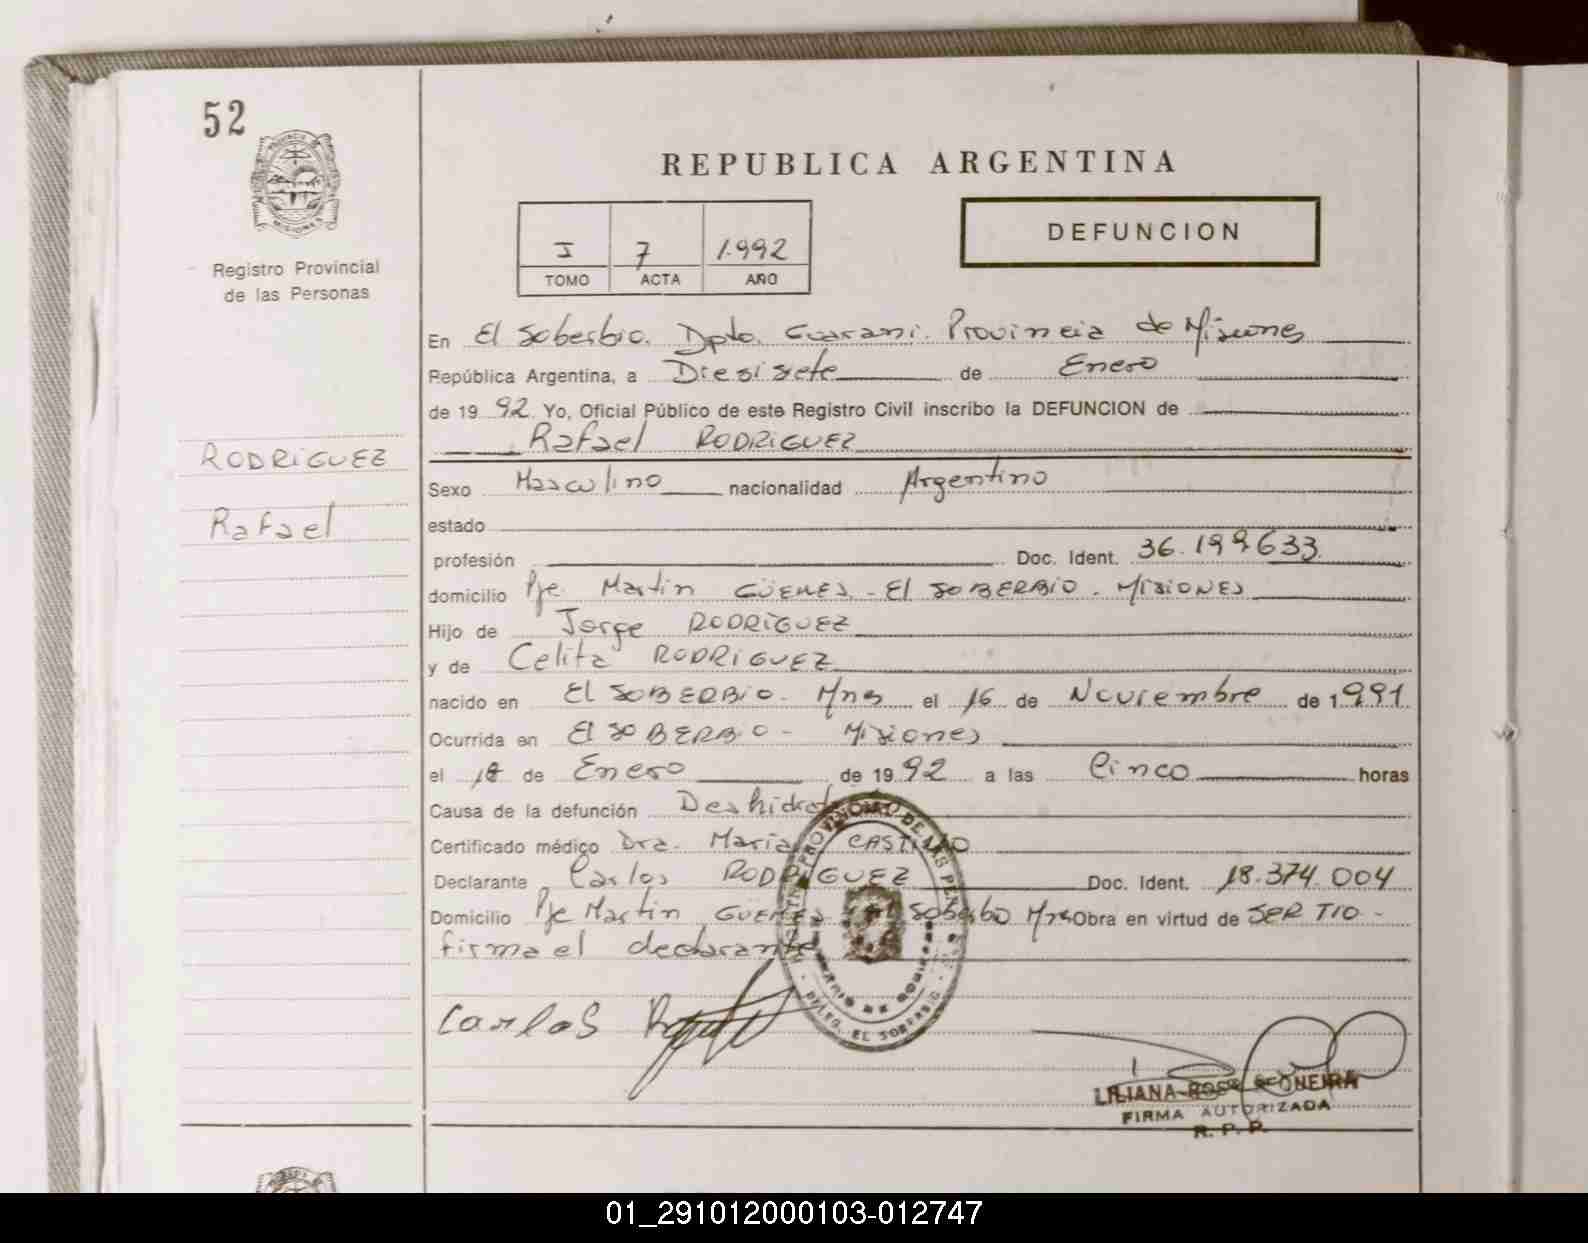 52
PROVINCIA DE
MISIONES
Registro Provincial
de las Personas
RODRIGUEZ
Rafael
REPUBLICA ARGENTINA
I 7 1.992
TOMO ACTA AÑO
DEFUNCION
En El Soberbio. Dpto. Guarani. Provincia de Misiones
República Argentina, a Diesisiete de Enero
de 19 92. Yo, Oficial Público de este Registro Civil inscribo la DEFUNCION de
Rafael RODRIGUEZ
Sexo Masculino nacionalidad Argentino
estado
profesión Doc. Ident. 36.199633.
domicilio Pje Martin GÜEMES. - El SOBERBIO. MISIONES
Hijo de Jorge RODRIGUEZ
y de Celita RODRIGUEZ
nacido en El SOBERBIO. Mnes el 16 de Noviembre de 1991
Ocurrida en El SOBERBIO - Misiones
el de Enero de 19 92 a las Cinco horas
Causa de la defunción
Certificado médico Dra. Maria CASTILLO
Declarante Carlos RODRIGUEZ Doc. Ident. 18.374.004
Domicilio Pje Martin GÜEMES El Soberbio Mnes Obra en virtud de SER TIO -
firma el declarante
Carlos
PROVINCIAL DE LAS PER
DELEG. EL SOBERBIO
LILIANA
FIRMA AUTORIZADA
R. P. P.
01_291012000103-012747